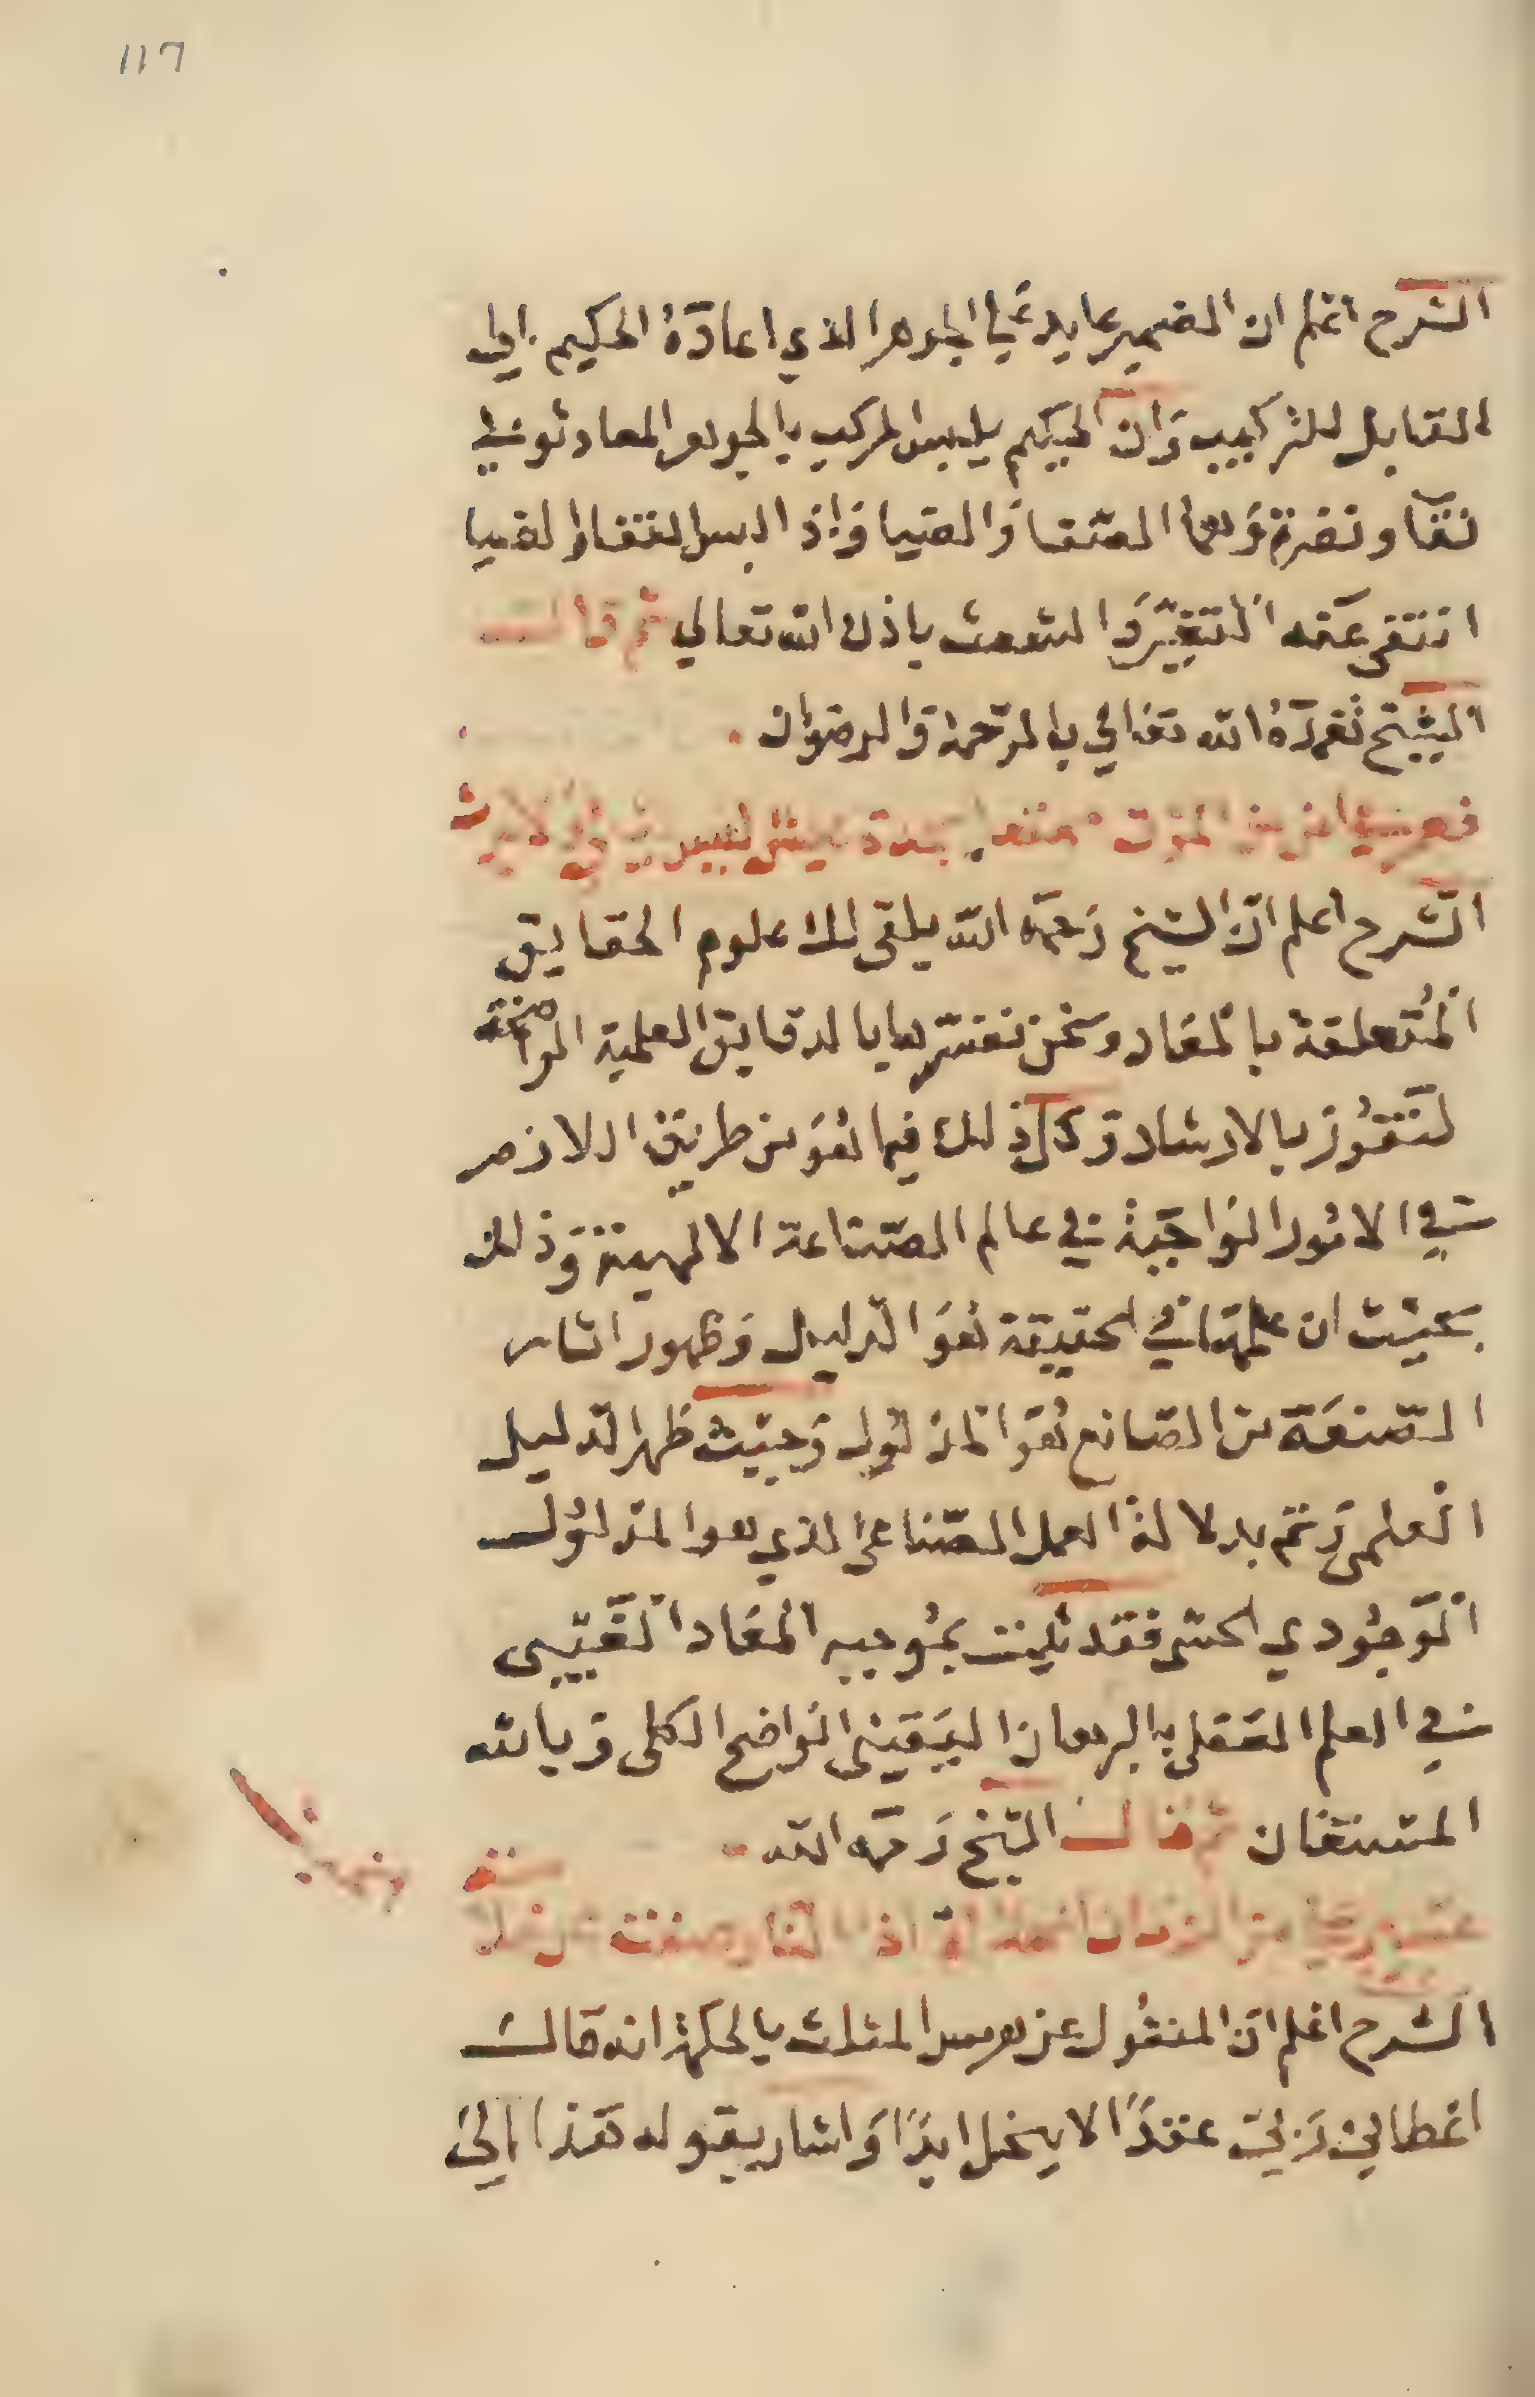 ١١٦
الشرح اعلم ان الضمير عايد عَلي الجوهر الذي اعادَهُ الحكيم الى
القابل للتركيب وَان الحكيم يلبس المركب بالجوهر المعاد ثوبي
نقا ونضرة وَهما الصّفا وَالضيا وَاِذا لبس النقا والضيا
انتفى عَنه التغيّر وَالشعث باذن الله تعالى ثم قال
الشيخ تغمّدَهُ الله تعَالي بالرّحمة وَالرضوان
الشرح اعلم انّ الشيخ رَحمَه الله يلقى لك علوم الحقايق
المُتعلقة بالمعَاد ونحن نفسّرها بالدقايق العلمية الواضحة
لتَفُوز بالارشاد وَكل ذلك فيما هُوَ من طريق اللازم
في الامُور الوَاجبَة في عالم الصّناعة الالهية وَذلك
بحيث ان علمهَا في الحقيقة هُوَ الدليل وَظهور اثار
الصّنعَة من الصّانع هُوَ المدلُول وَحيث ظهر الدليل
العلمى وَتم بدلالة العمل الصّناعى الذي هو المدلول
الوَجُودي الحسّى فقد ثبت بمُوجبه المعَاد الغَيبى
في العلم العَقلى بالبرهان اليَقينى الوَاضح الكلى وَبالله
المستعَان ثم قال الشيخ رَحمَه الله
الشرح اعْلم انّ المنقُول عن هرمس المثلث بالحكمة انه قال
اعْطاني رَبي عقدًا لا ينحل ابدًا وَاشار بقوله هَذا الى